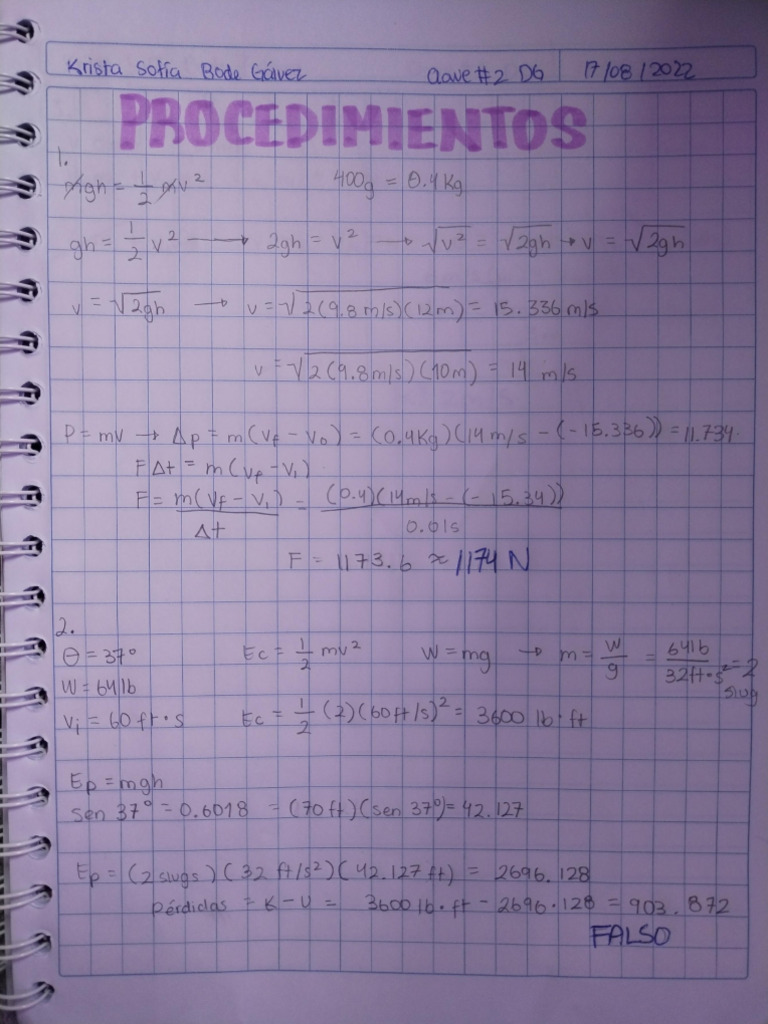 Krista Sofía Bode Gálvez Clave #2 DG 17/08/2022
PROCEDIMIENTOS
1.
mgh = 1/2 mv² 400g = 0.4 Kg
gh = 1/2 v² → 2gh = v² → √v² = √2gh → v = √2gh
v = √2gh → v = √2(9.8 m/s)(12m) = 15.336 m/s
v = √2(9.8 m/s)(10m) = 14 m/s
P = mv → Δp = m(Vf - Vo) = (0.4Kg)(14 m/s - (-15.336)) = 11.734.
FΔt = m(vf - v₁)
F = m(vf - v₁)/Δt = (0.4)(14m/s - (-15.34))/0.01s
F = 1173.6 ≈ 1174 N
2.
θ = 37° Ec = 1/2 mv² W = mg → m = W/g = 64lb/32ft·s² = 2 slug
W = 64lb
Vi = 60 ft·s Ec = 1/2 (2)(60ft/s)² = 3600 lb·ft
Ep = mgh
sen 37° = 0.6018 = (70ft)(sen 37°) = 42.127
Ep = (2 slugs)(32 ft/s²)(42.127 ft) = 2696.128
Pérdidas = K - U = 3600 lb·ft - 2696.128 = 903.872
FALSO